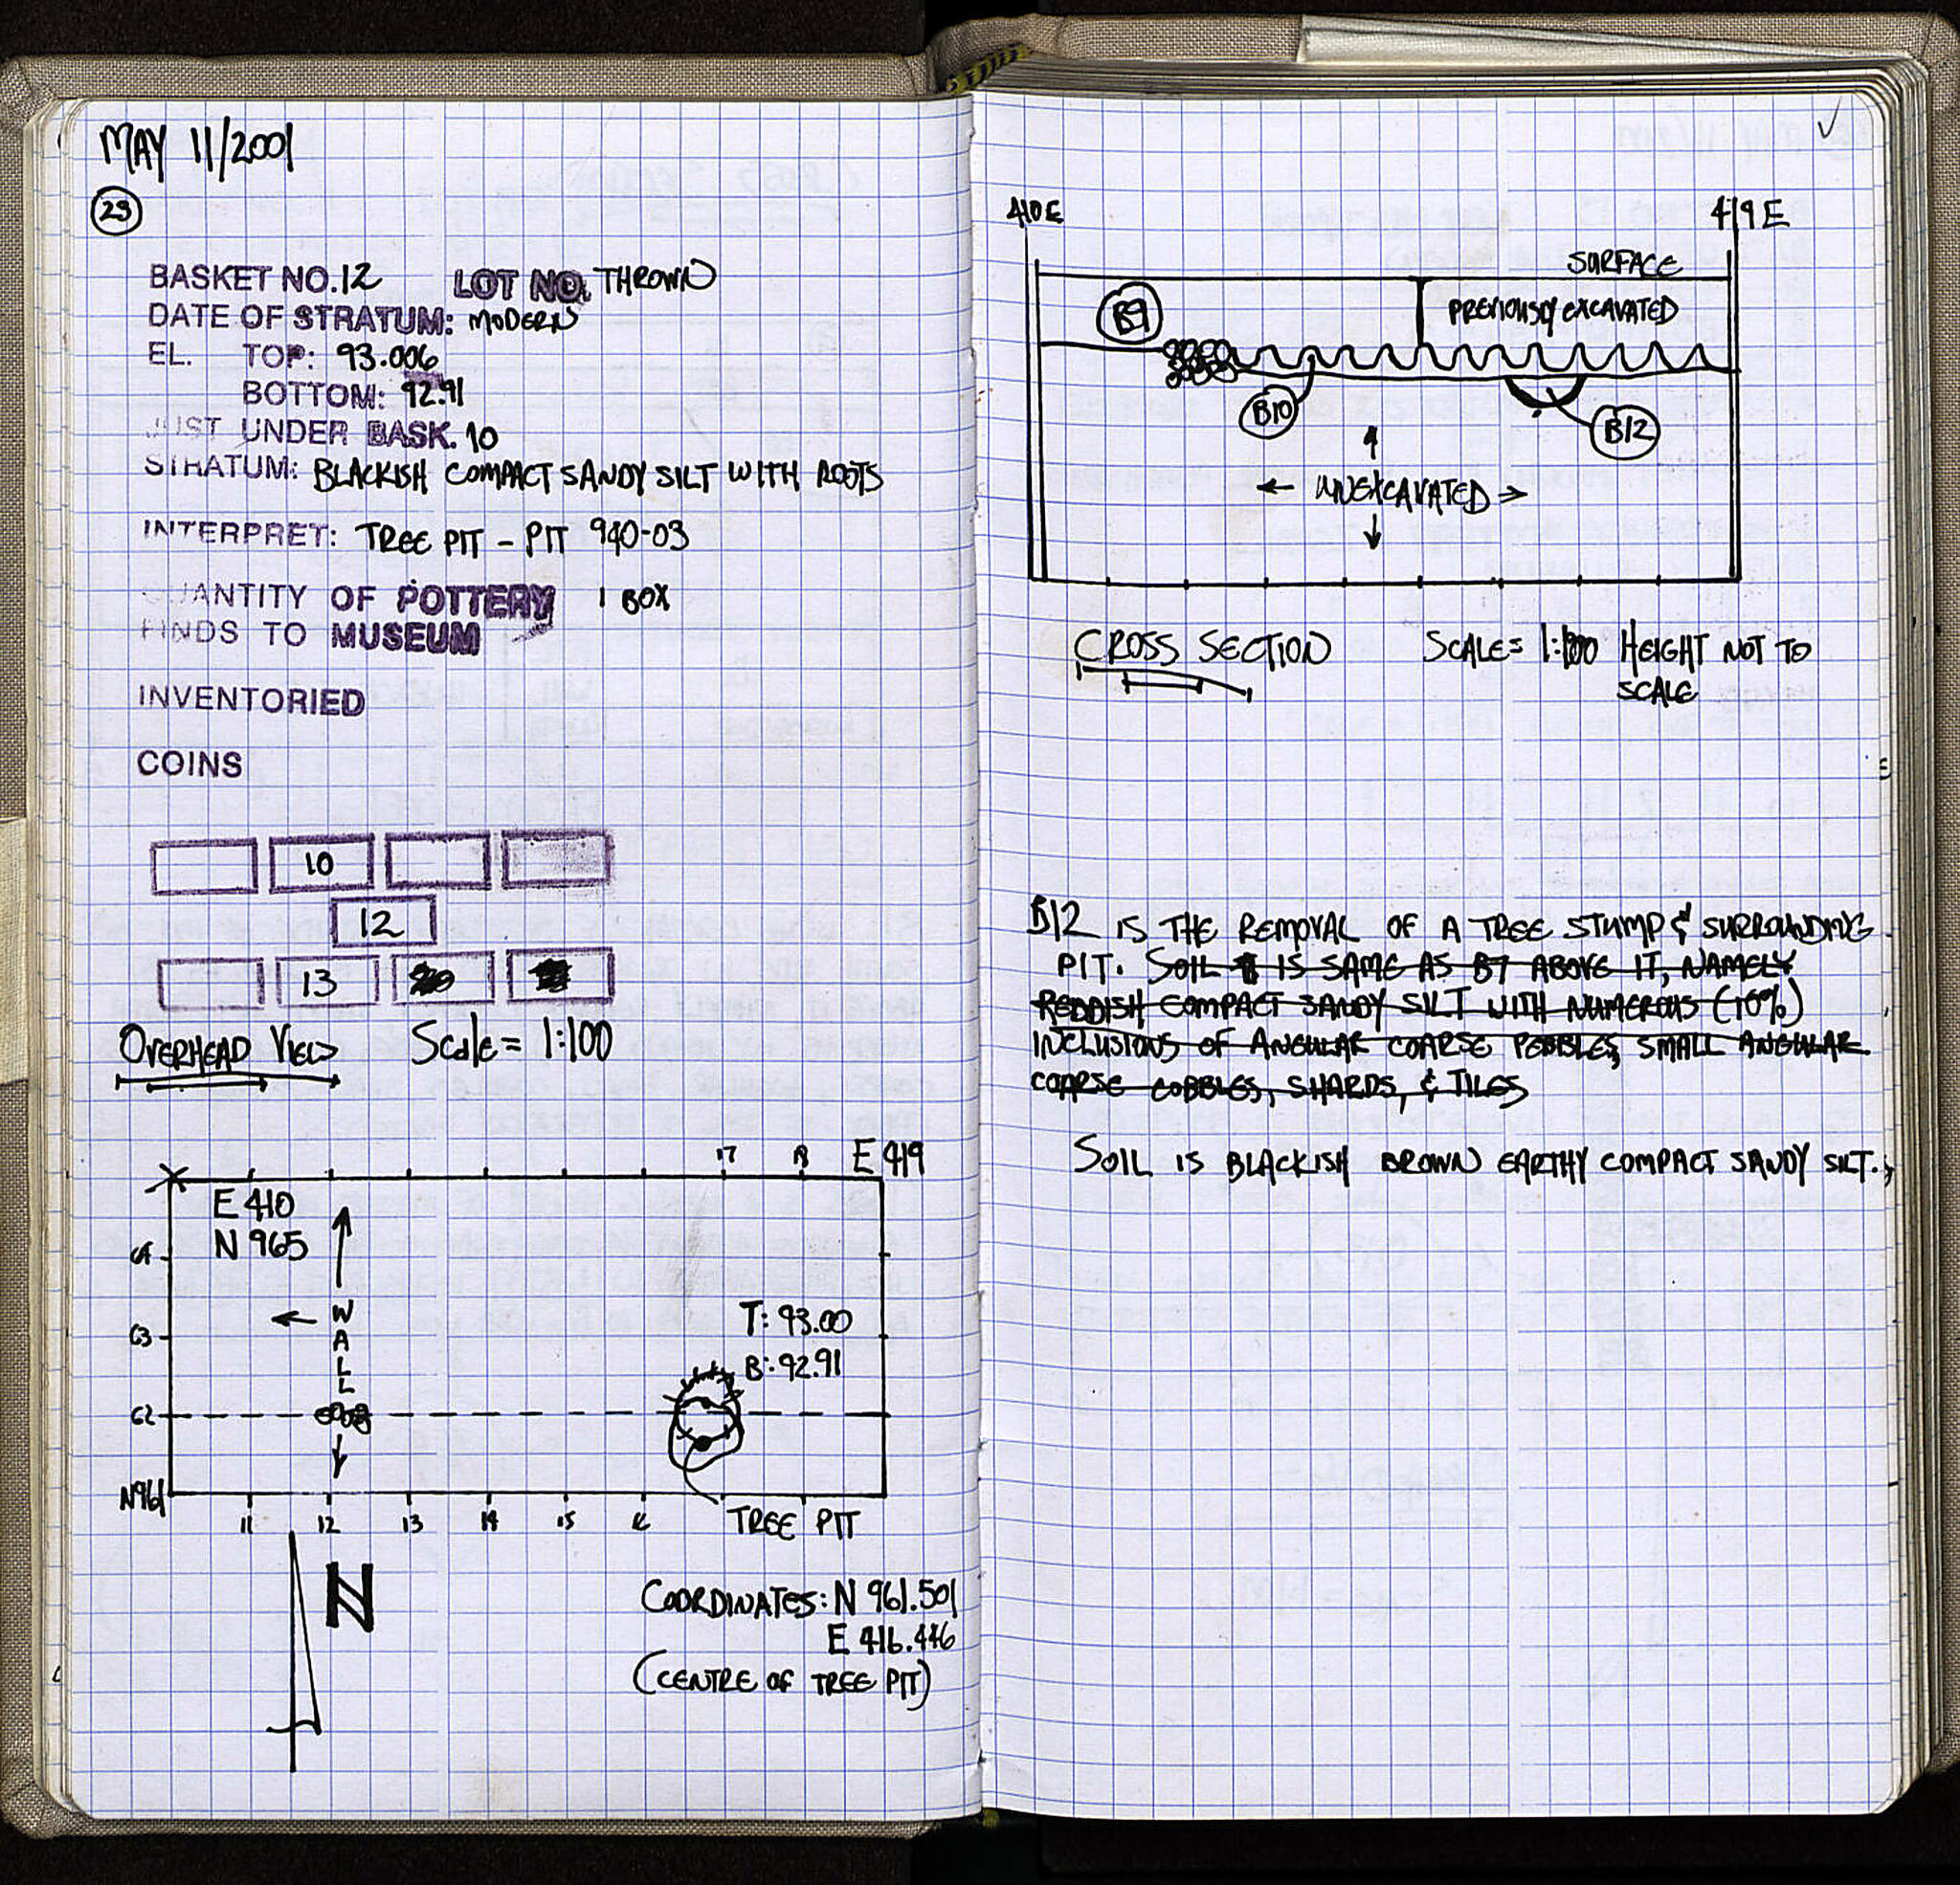 MAY 11/2001
23
BASKET NO. 12 LOT NO. THROWN
DATE OF STRATUM: MODERN
EL. TOP: 93.006
BOTTOM: 92.91
JUST UNDER BASK. 10
STRATUM: BLACKISH COMPACT SANDY SILT WITH ROOTS
INTERPRET: TREE PIT - PIT 940-03
QUANTITY OF POTTERY 1 BOX
FINDS TO MUSEUM
INVENTORIED
COINS
10
12
13
OVERHEAD VIEW Scale = 1:100
17 18 E 419
E 410
N 965
64
WALL
63
T: 93.00
B: 92.91
62
N961
11 12 13 14 15 16 TREE PIT
N
COORDINATES: N 961.501
E 416.446
(CENTRE OF TREE PIT)
410 E 419 E
SURFACE
B9 PREVIOUSLY EXCAVATED
B10 B12
UNEXCAVATED
CROSS SECTION SCALE = 1:100 HEIGHT NOT TO
SCALE
B12 IS THE REMOVAL OF A TREE STUMP & SURROUNDING
PIT. SOIL IS SAME AS B7 ABOVE IT, NAMELY
REDDISH COMPACT SANDY SILT WITH NUMEROUS (10%)
INCLUSIONS OF ANGULAR COARSE PEBBLES, SMALL ANGULAR
COARSE COBBLES, SHARDS, & TILES
SOIL IS BLACKISH BROWN EARTHY COMPACT SANDY SILT.